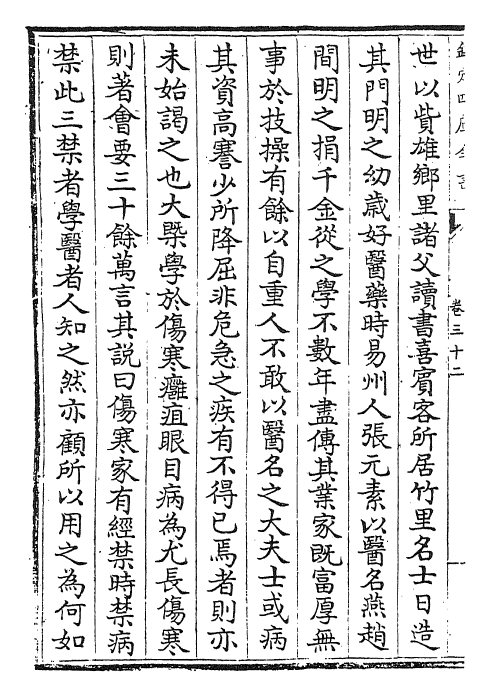 欽定四庫全書
卷三十二
世以貲雄鄉里諸父讀書喜賓客所居竹里名士日造
其門明之幼歳好醫藥時易州人張元素以醫名燕趙
間明之捐千金從之學不數年盡傳其業家既富厚無
事於技操有餘以自重人不敢以醫名之大夫士或病
其資高謇少所降屈非危急之疾有不得已焉者則亦
未始謁之也大槩學於傷寒癰疽眼目病為尤長傷寒
則著㑹要三十餘萬言其説曰傷寒家有經禁時禁病
禁此三禁者學醫者人知之然亦顧所以用之為何如